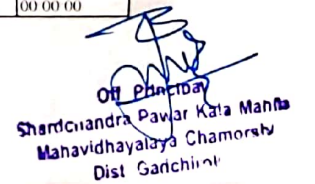 00 00 00
Off Principal
Sharadchandra Pawar Kala Mahila
Mahavidhayalaya Chamorshi
Dist Gadchiroli